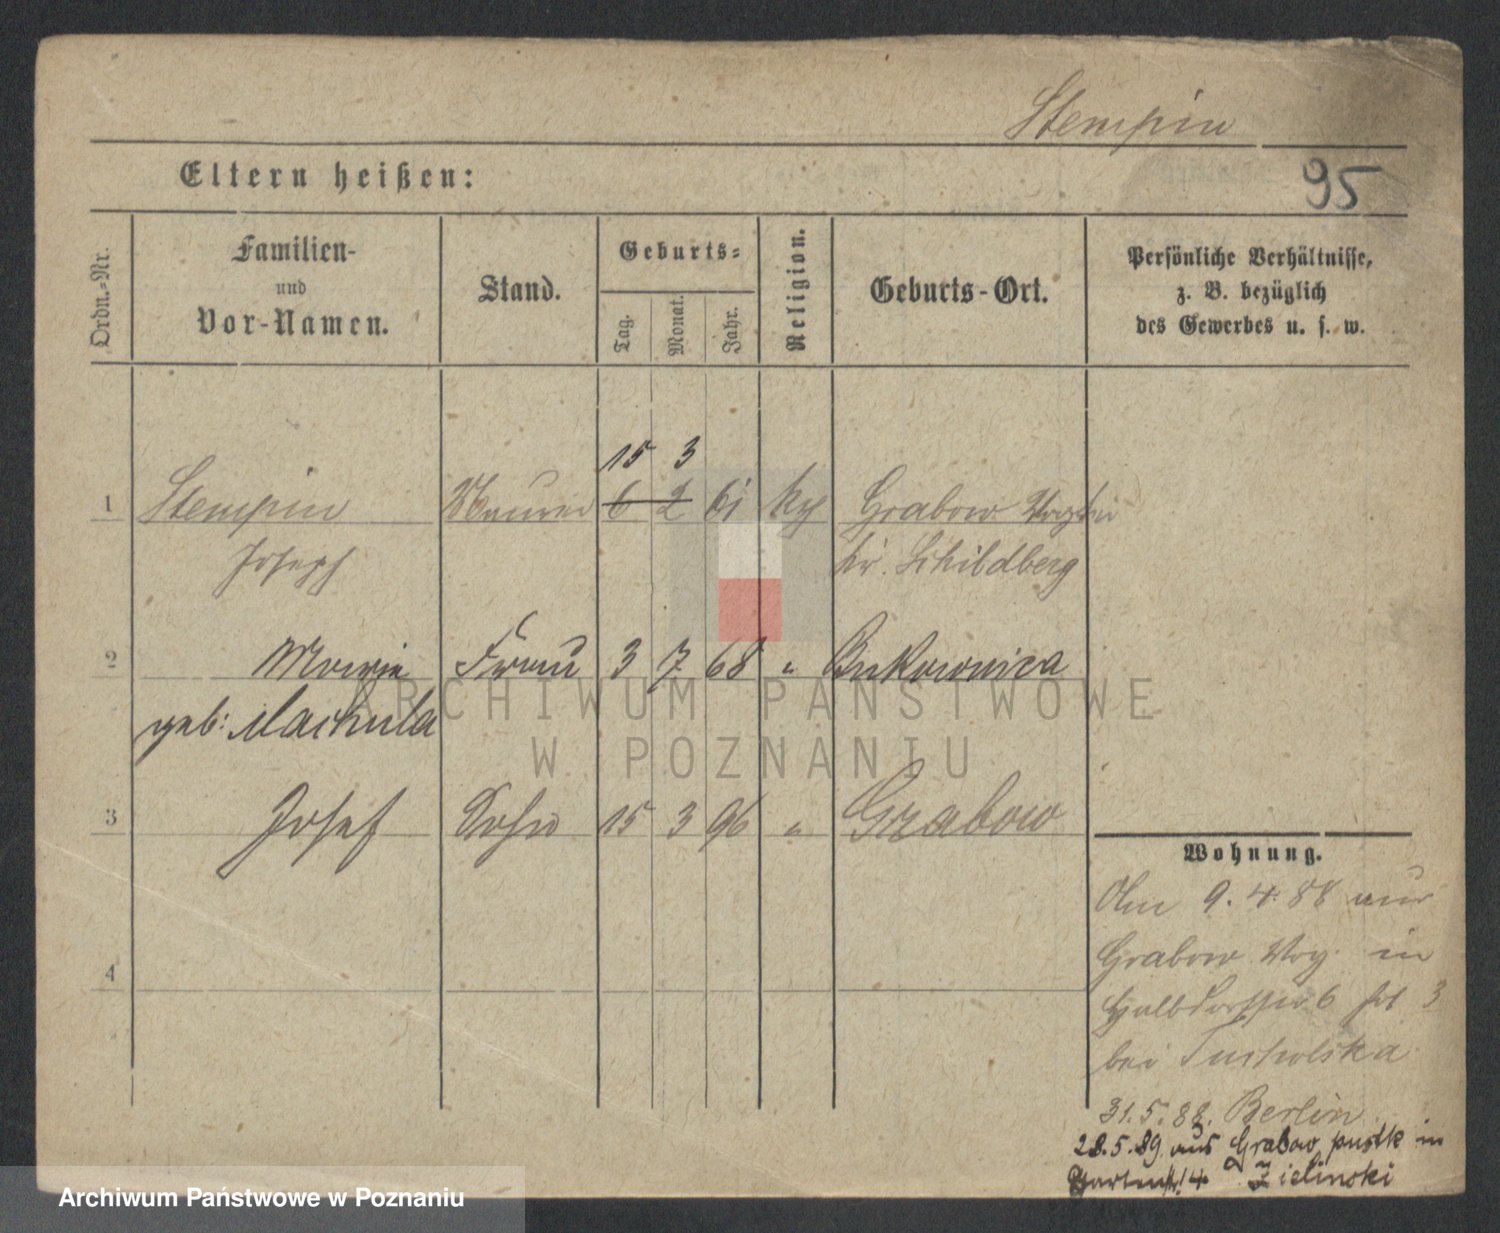 Stempin
Eltern heißen:
95
Ordn.-Nr.
Familien-
und
Vor-Namen.
Stand.
Geburts-
Tag.
Monat.
Jahr.
Religion.
Geburts-Ort.
Persönliche Verhältnisse,
z. B. bezüglich
des Gewerbes u. s. w.
15 3
1 Stempin Maurer 6 2 61 Grabow
Joseph Kr. Schildberg
2 Marie Frau 3 7 68 " Bukownica
geb: Machula
3 Josef Sohn 15 3 96 " Grabow
4
Wohnung.
9. 4. 88 aus
Grabow in
Halbdorfstr 6
bei Tucholska
31.5.88. Berlin
28.5.89 aus Grabow in
Gartenstr. 14 Zielinski
ARCHIWUM PAŃSTWOWE
W POZNANIU
Archiwum Państwowe w Poznaniu